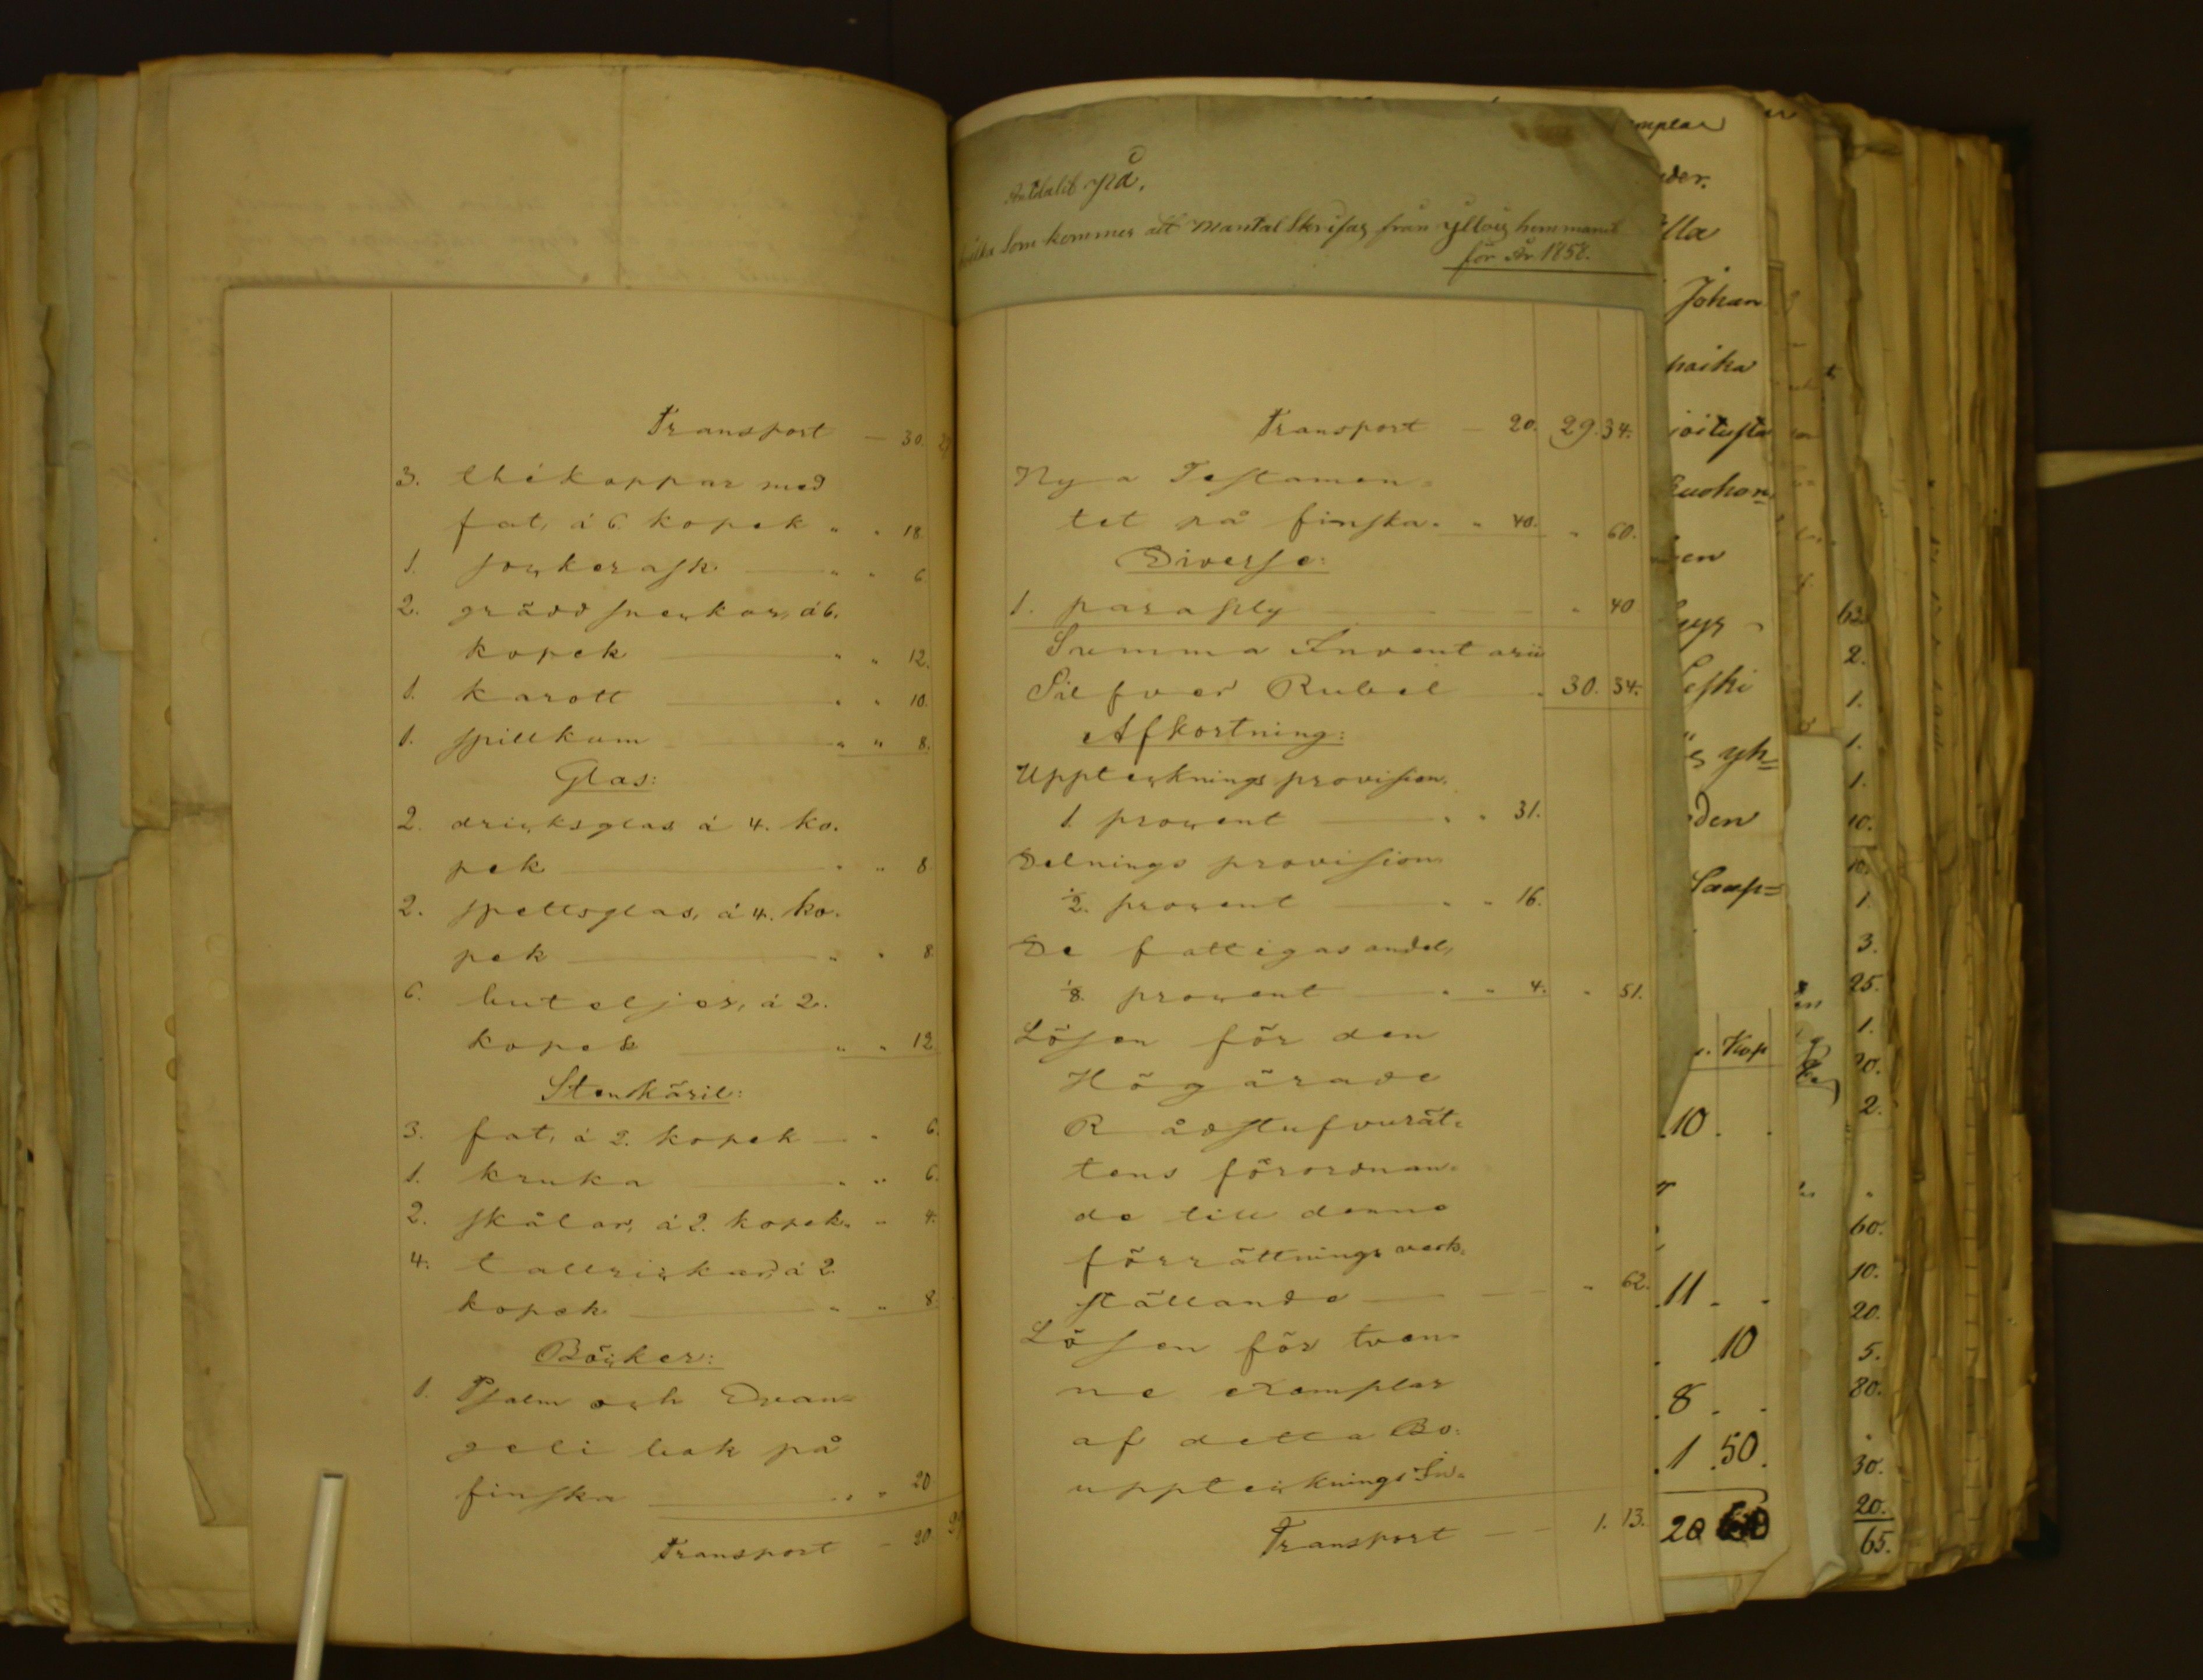 Transport — 30. 29
3. thékoppar med
fat, á 6. kopek " " 18.
1. sockerask " " 6.
2. gräddsneckor, á 6.
kopek " " 12.
1. karott " " 10.
1. spillkum " " 8.
Glas:
2. dricksglas á 4. ko-
pek " " 8
2. spetsglas, á 4. ko-
pek " " 8
6. buteljer, á 2.
kopek " " 12
Stenkäril:
3. fat, á 2. kopek — " 6.
1. kruka " " 6.
2. skålar, á 2. kopek " " 4.
4. tallrickar, á 2
kopek " " 8.
Böcker:
1. Psalm och Evan-
geli bok på
finska " " 20
Transport — 20
på.
Som kommer att Mantal Skrifas från hemmanet
för År 1858.
Transport — 20. 29. 34.
Nya Testamen-
tet på finska. " 40. " 60.
Diverse:
1. paraply " 40
Summa Inventarii
Silfver Rubel 30. 34.
Afkortning:
Upptecknings provision
1. procent " " 31.
Delnings provision
½. procent " " 16.
De fattigas andel,
⅛. procent " " 4. " 51.
Lösen för den
Högärade
Rådstufvurät-
tens förordnan-
de till denna
förrättnings verk-
ställande — " 62.
Lösen för tven-
ne exemplar
af detta Bo-
upptecknings In-
Transport — 1. 13.
Johan
den
Kop
10.
11.
.10
8.
1 .50.
20
62.
2.
1.
1.
1.
10.
10.
1.
3.
25.
1.
20.
2.
60.
10.
20.
5.
80.
30.
20.
65.